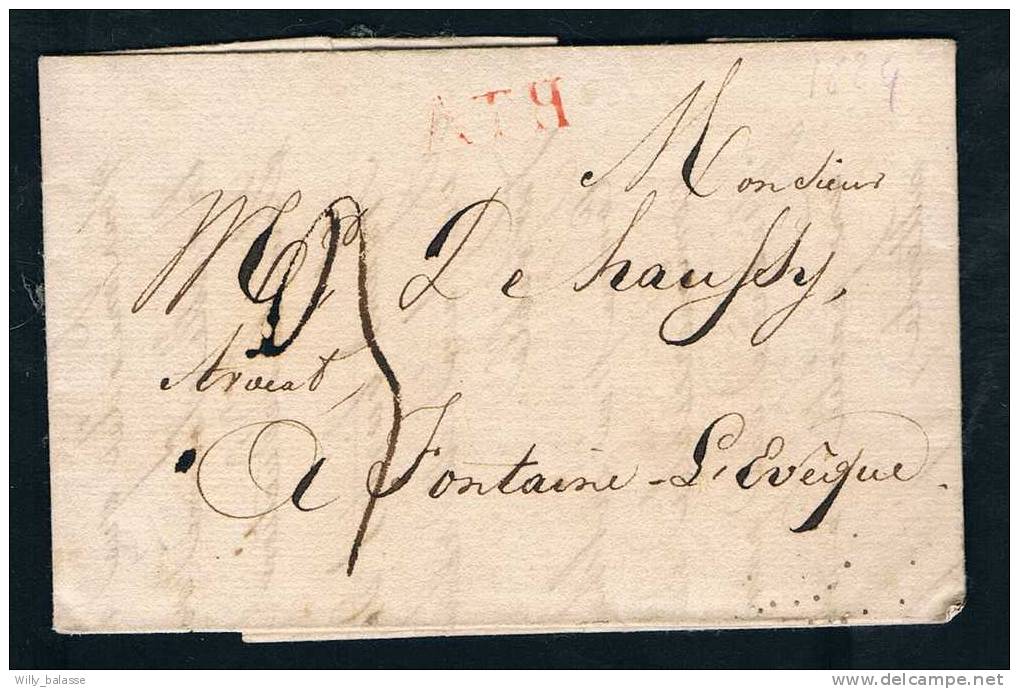 ATH
1829
Monsieur
Dehaussy,
Avocat,
A Fontaine-L'Evêque.
Willy_balasse
delcampe.net